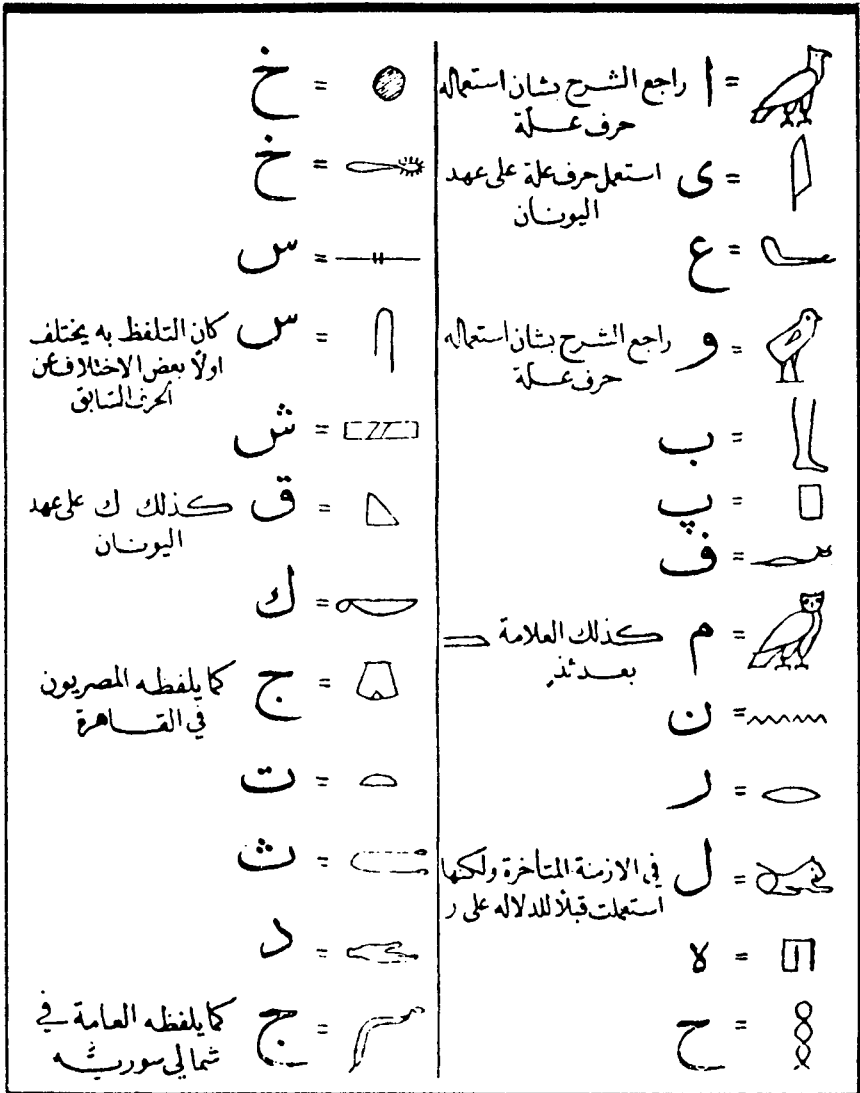 = ا راجع الشرح بشان استعماله
حرف عـلّة
= ى استعمل حرف علة على عهد
اليونـان
= ع
= و راجع الشرح بشان استعماله
حرف عـلّة
= ب
= پ
= ف
= م كذلك العلامة
بعـدئذٍ
= ن
= ر
= ل في الازمنة المتأخرة ولكنها
استعملت قبلًا للدلاله على ر
= ه
= ح
= خ
= خ
= س
= س كان التلفظ به يختلف
اولًا بعض الاختلاف عن
الحرف السّابق
= ش
= ق كذلك ك على عهد
اليونـان
= ك
= ج كما يلفظه المصريون
في القـاهرة
= ت
= ث
= د
= ج كما يلفظه العامة في
شمالي سوريـّه